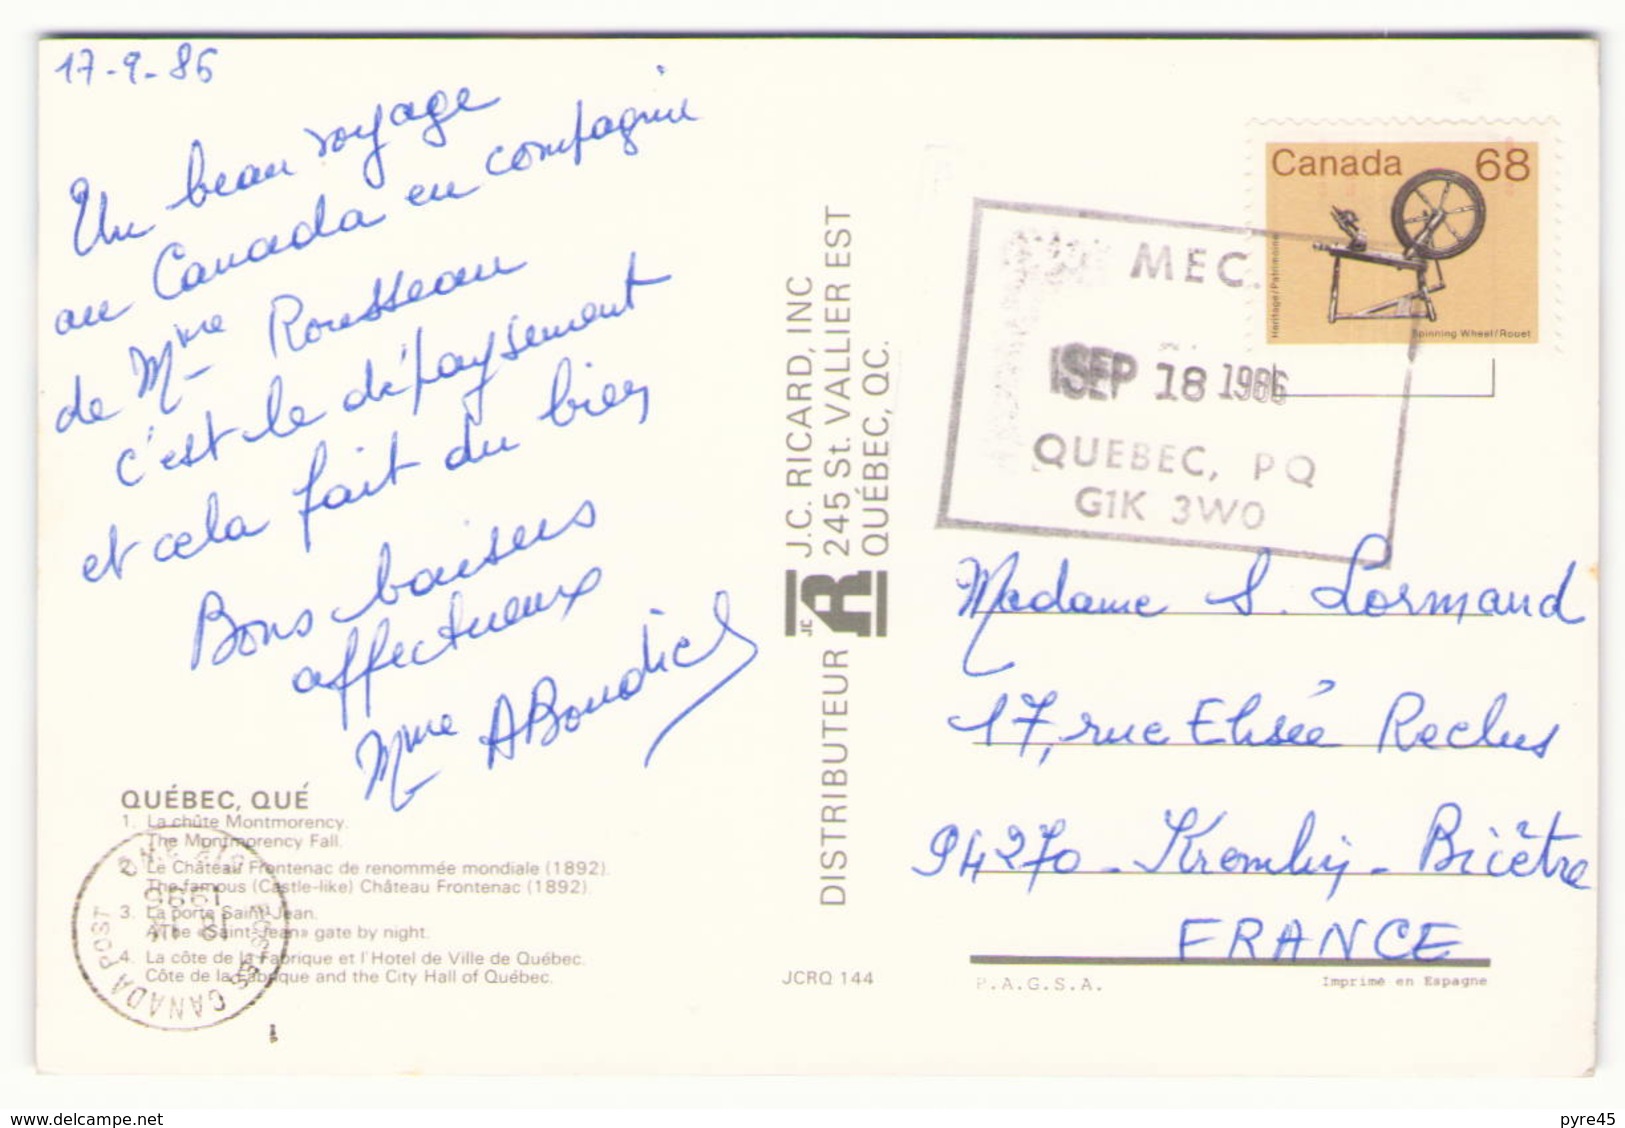 17-9-86
Un beau voyage
au Canada en compagnie
de Mme Rousseau
c'est le dépaysement
et cela fait du bien
Bons baisers
affectueux
Mme
QUÉBEC, QUÉ
1. La chûte Montmorency.
The Montmorency Fall.
2. Le Château Frontenac de renommée mondiale (1892).
The famous (Castle-like) Château Frontenac (1892).
3. La porte Saint-Jean.
The «Saint-Jean» gate by night.
4. La côte de la Fabrique et l'Hotel de Ville de Québec.
Côte de la Fabrique and the City Hall of Québec.
CANADA POST
DISTRIBUTEUR
JC
R
J.C. RICARD, INC
245 St. VALLIER EST
QUÉBEC, QC.
JCRQ 144
Canada 68
Heritage/Patrimoine
Spinning Wheel/Rouet
MEC.
SEP 18 1986
QUEBEC, PQ
G1K 3W0
Madame S. Lormand
17, rue Elisée Reclus
94270 - Kremlin - Bicêtre
FRANCE
P.A.G.S.A.
Imprimé en Espagne
www.delcampe.net
pyre45